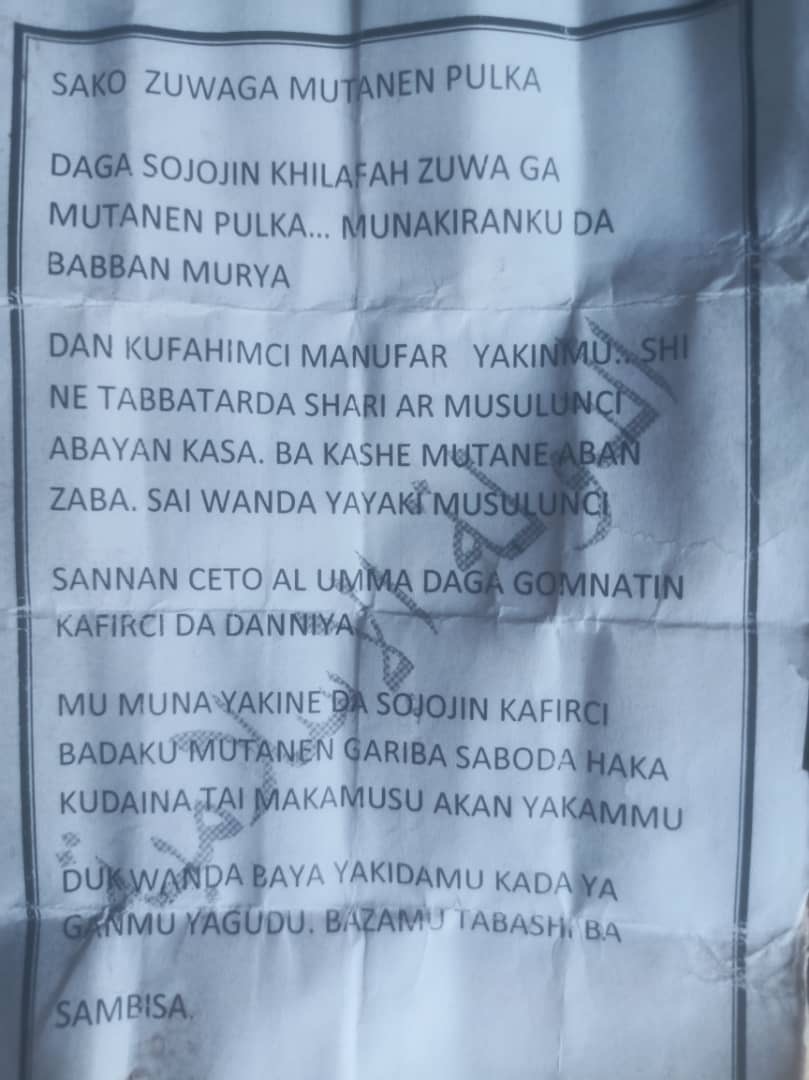 SAKO ZUWAGA MUTANEN PULKA
DAGA SOJOJIN KHILAFAH ZUWA GA
MUTANEN PULKA... MUNAKIRANKU DA
BABBAN MURYA
DAN KUFAHIMCI MANUFAR YAKINMU.. SHI
NE TABBATARDA SHARI AR MUSULUNCI
ABAYAN KASA. BA KASHE MUTANE ABAN
ZABA. SAI WANDA YAYAKI MUSULUNCI
SANNAN CETO AL UMMA DAGA GOMNATIN
KAFIRCI DA DANNIYA
MU MUNA YAKINE DA SOJOJIN KAFIRCI
BADAKU MUTANEN GARIBA SABODA HAKA
KUDAINA TAI MAKAMUSU AKAN YAKAMMU
DUK WANDA BAYA YAKIDAMU KADA YA
GANMU YAGUDU. BAZAMU TABASHI BA
SAMBISA.